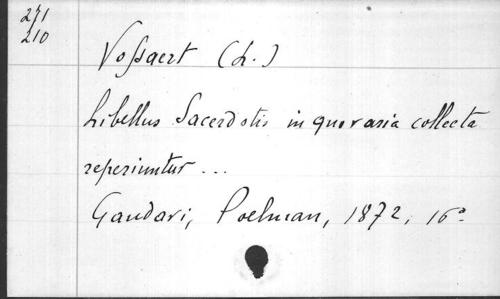 271
210
Vossaert (L.)
Libellus Sacerdotis in quo varia collecta
reperiuntur ...
Gandavi, Poelman, 1872, 16°